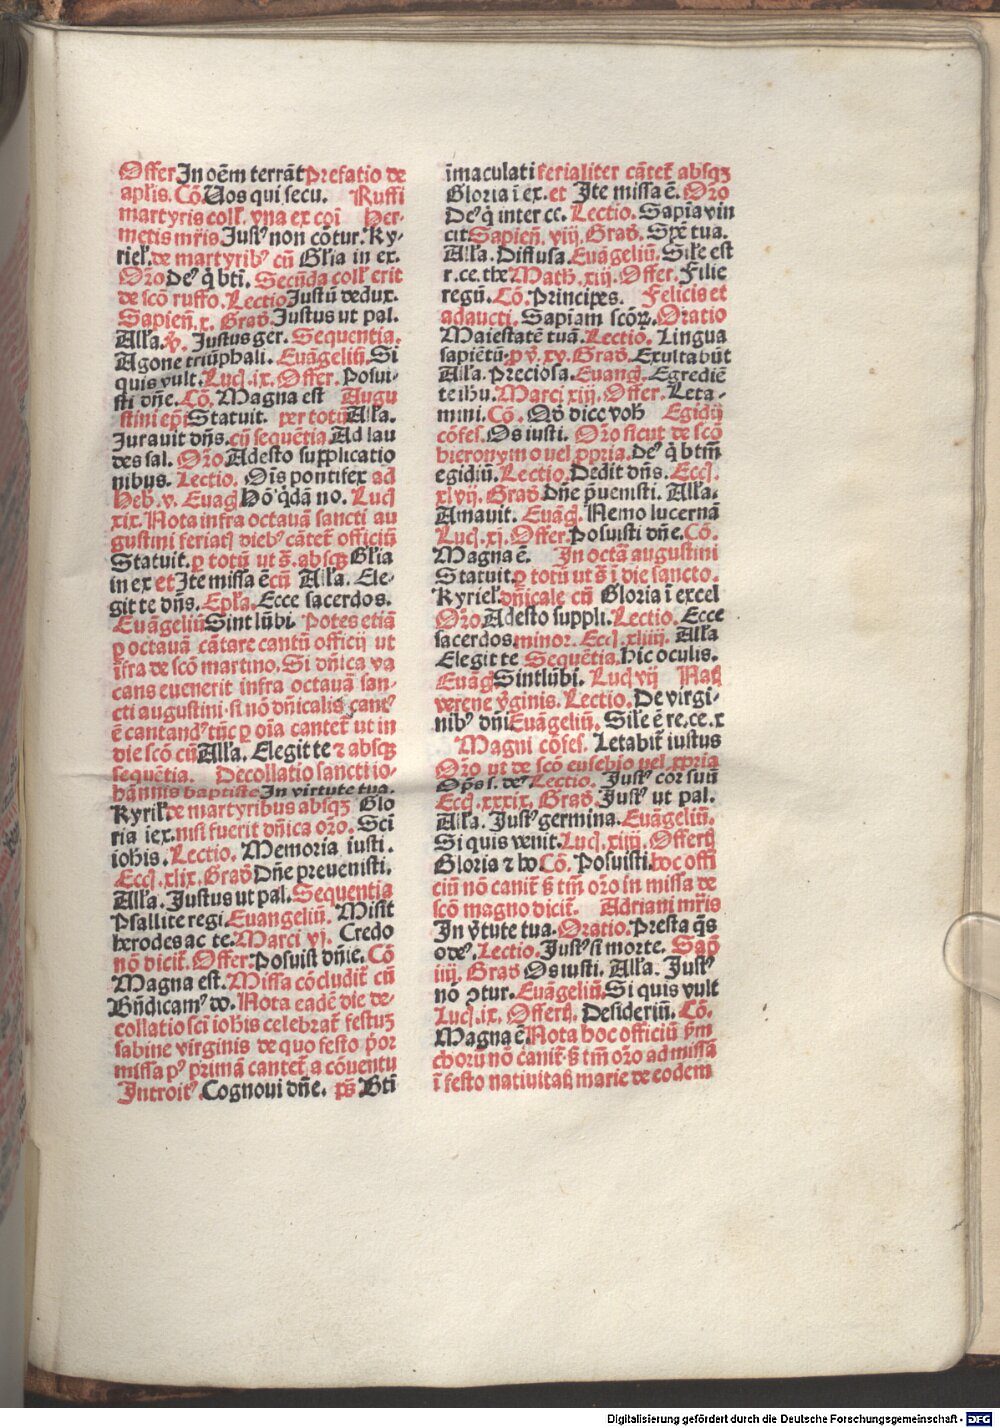 Offer In oēm terrāt Prefatio de
aplis. Cō. Uos qui secu. Ruffi
martyris coll. vna ex coi Her-
metis mr̄is Just⁹ non cōtur. Ky-
riel. de martyrib⁹ cū Gl̄ia in ex.
Orō De⁹ q̄ bti. Secūda coll erit
de scō ruffo. Lectio Justū dedux.
Sapień. x. Grad̄. Justus ut pal.
All̄a. v̄. Justus ger. Sequentia.
Agone triūphali. Euāgeliū. Si
quis vult. Luc̄. ix. Offer. Posui-
sti dn̄e. Cō. Magna est Augu
stini ep̄i Statuit. per totū All̄a.
Jurauit dn̄s. cū sequētia Ad lau
des sal. Orō. Adesto supplicatio
nibus. Lectio. Oīs pontifex ad
Heb. v. Euāḡ Hō q̇dā no. Luc̄
xix. Nota infra octauā sancti au
gustini feriaɫ dieb⁹ cātet̄ officiū
Statuit. ꝑ totū ut s̄. absqꝫ Gl̄ia
in ex et Ite missa ē cū All̄a. Ele-
git te dn̄s. Epl̄a. Ecce sacerdos.
Euāgeliū Sint lūbi. Potes etiā
ꝑ octauā cātare cantū officij ut
īfra de scō martino. Si dn̄ica va
cans euenerit infra octauā san-
cti augustini si nō dn̄icalis cant⁹
ē cantand⁹ tūc ꝑ oīa cantet̄ ut in
die scō cū All̄a. Elegit te ⁊ absqꝫ
sequētia. Decollatio sancti io-
hannis baptiste In virtute tua.
Kyriel̄ de martyribus absqꝫ Glo
ria ī ex. nisi fuerit dn̄ica orō. Sc̄i
ioh̄is. Lectio. Memoria iusti.
Ecc̄. xlix. Grad̄ Dn̄e preuenisti.
All̄a. Justus ut pal. Sequentia
Psallite regi. Euangeliū. Misit
herodes ac te. Marci vj. Credo
nō dicit̄. Offer. Posuist dn̄e. Cō
Magna est. Missa cōcludit̄ cū
Bn̄dicam⁹ do. Nota eadē die de-
collatio sc̄i ioh̄is celebrat̄ festuꝫ
sabine virginis de quo festo p̄or
missa p⁹ primā cantet̄ a cōuentu
Introit⁹. Cognoui dn̄e. ps̄ Bti
īmaculati ferialiter cātet̄ absqꝫ
Gloria ī ex. et Ite missa ē. Orō
De⁹ q̄ inter ce. Lectio. Sapīa vin
cit Sapień. viij. Grad̄. Spē tua.
All̄a. Diffusa. Euāgeliū. Sil̄e est
r. ce. the Math̄. xiij. Offer. Filie
regū. Cō. Principes. Felicis et
adaucti. Sapiam scōꝝ. Oratio
Maiestatē tuā. Lectio. Lingua
sapiētū. ꝓ v̄. xv. Grad̄. Exultabūt
All̄a. Preciosa. Euanḡ. Egrediē
te ihu. Marci xiij. Offer. Leta-
mini. Cō. Qd̄ dico vob̄ Egidij
cōfes. Os iusti. Orō sicut de scō
hieronymo vel ꝓpria. De⁹ q̄ btm̄
egidiū. Lectio. Dedit dn̄s. Ecc̄.
xlvij. Grad̄ Dn̄e p̄uenisti. All̄a.
Amauit. Euāḡ. Nemo lucernā
Luc̄. xj. Offer. Posuisti dn̄e. Cō.
Magna ē. In octā augustini
Statuit ꝑ totū ut s̄ ī die sancto.
Kyriel̄ dn̄icale cū Gloria ī excel
Orō. Adesto suppli. Lectio. Ecce
sacerdos. minor. Ecc̄. xliiij. All̄a
Elegit te Sequētia. hic oculis.
Euāḡ Sint lūbi. Luc̄ vij Nat̄
verene v̄ginis. Lectio. De virgi-
nib⁹ dn̄i Euāgeliū. Sil̄e ē re. ce. x
Magni cōfes. Letabit̄ iustus
Orō ut de scō eusebio vel ꝓpria
Op̄s s. de⁹ Lectio. Just⁹ cor suū
Ecc̄. xxxix. Grad̄ Just⁹ ut pal.
All̄a. Just⁹ germina. Euāgeliū.
Si quis venit. Luc̄. xiiij. Offerꝭ
Gloria ⁊ ho Cō. Posuisti. hoc offi
ciū nō canit̄ s̄ tm̄ orō in missa de
scō magno dicit̄. Adriani mr̄is
In v̄tute tua. Oratio. Presta q̄s
o de⁹. Lectio. Just⁹ si morte. Sap̄
iiij. Grad̄ Os iusti. All̄a. Just⁹
nō ɔtur. Euāgeliū. Si quis vult
Luc̄. ix. Offerꝭ. Desideriū. Cō.
Magna ē Nota hoc officiū ꝑm
chorū nō canit̄ s̄ tm̄ orō ad missā
ī festo natiuitaꝭ marie de eodem
Digitalisierung gefördert durch die Deutsche Forschungsgemeinschaft - DFG